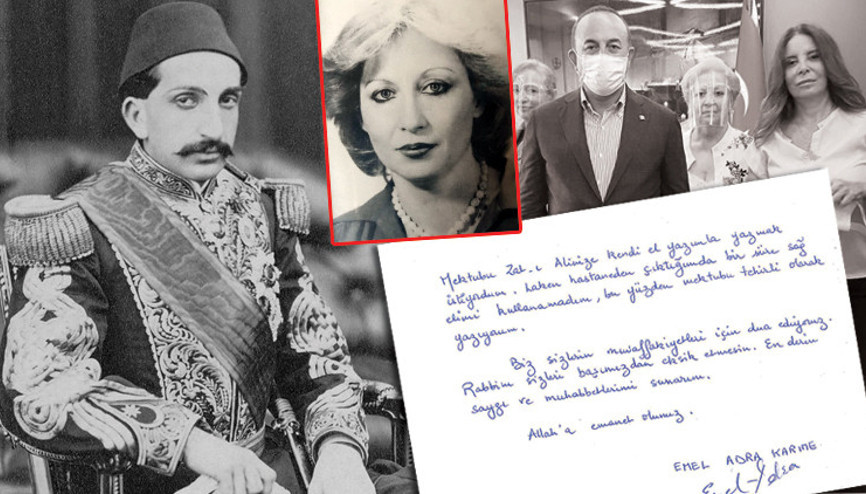 Mektubu Zat-ı Alinize kendi el yazımla yazmak
istiyordum. Laken hastaneden çıktığımda bir süre sağ
elimi kullanamadım, bu yüzden mektubu tehirli olarak
yazıyorum.
Biz sizlerin muvaffakiyetleri için dua ediyoruz.
Rabbim sizleri başımızdan eksik etmesin. En derin
saygı ve muhabbetlerimi sunarım.
Allah'a emanet olunuz.
EMEL ADRA KARIME